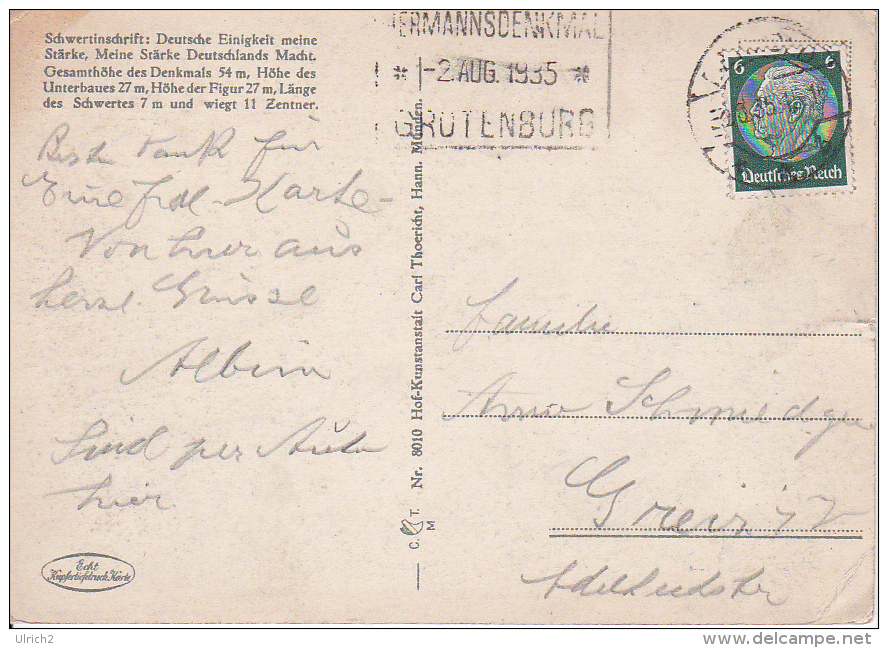 Schwertinschrift: Deutsche Einigkeit meine
Stärke, Meine Stärke Deutschlands Macht.
Gesamthöhe des Denkmals 54 m, Höhe des
Unterbaues 27 m, Höhe der Figur 27 m, Länge
des Schwertes 7 m und wiegt 11 Zentner.
HERMANNSDENKMAL
* -2.AUG.1935 *
GROTENBURG
6 6
Deutsches Reich
Besten Dank für
Eure frdl. Karte-
Von hier aus
herzl. Grüsse
Albin
Sind per Auto
hier
Echt
Kupfertiefdruck-Karte
C. T.
M
Nr. 8010 Hof-Kunstanstalt Carl Thoericht, Hann. Münden.
Familie
Arno
Greiz
Ulrich2
delcampe.net